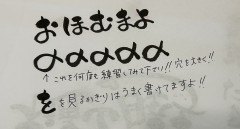 おほむまよ
ααααα
↑これを何度も練習してみて下さい!!穴を大きく!!
をを見るかぎりはうまく書けてますよ!!